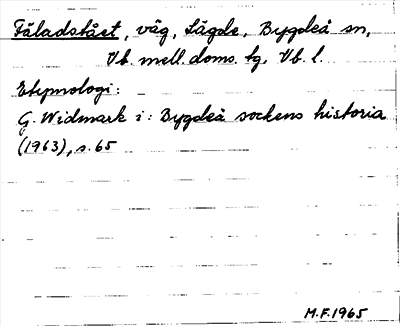 Fäladstået, väg, Lägde, Bygdeå sn,
Vb. mell. doms. tg. Vb. l.
Etymologi:
G. Widmark i: Bygdeå sockens historia
(1963), s. 65
M.F. 1965